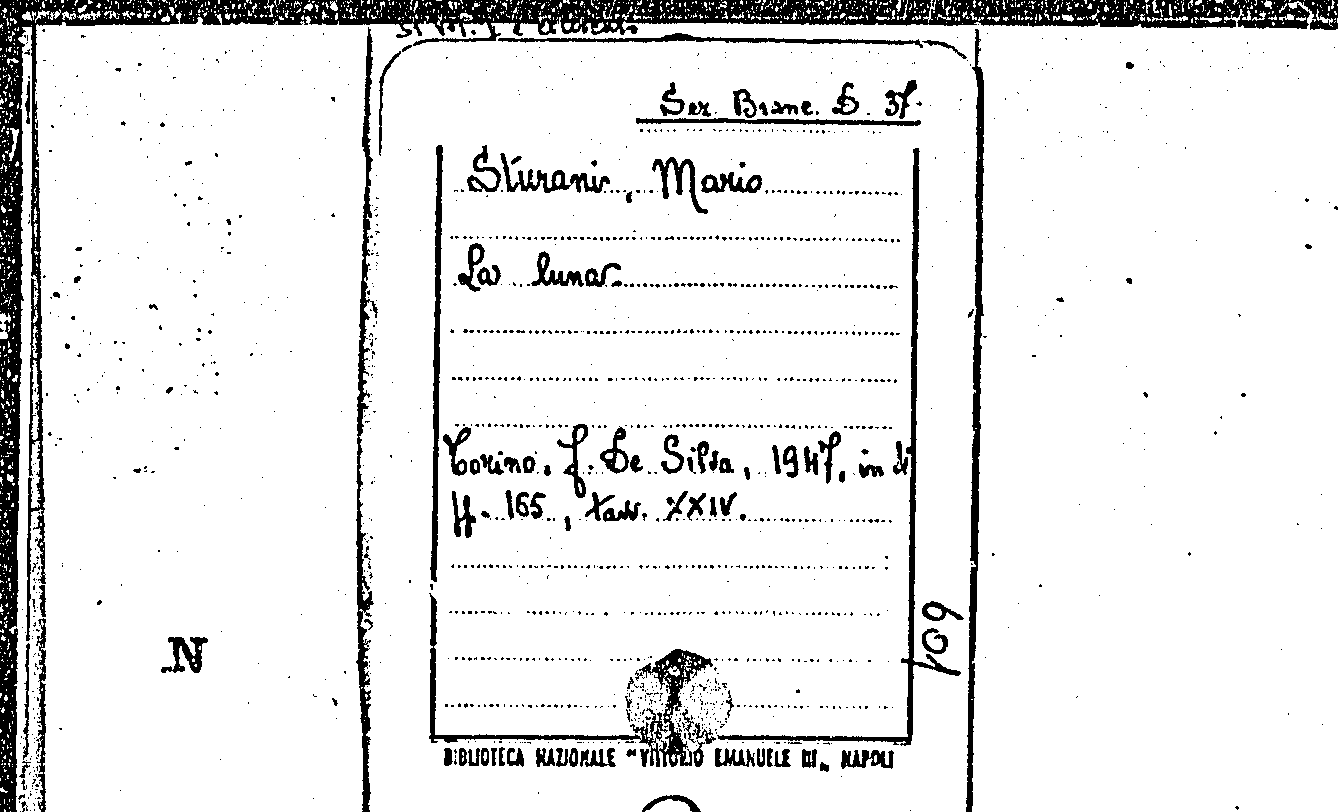 Sez. Branc. D. 37.
Sturani, Mario
La luna.
Torino. f. De Silva, 1947. in
pp. 165, tav. XXIV.
609
N
BIBLIOTECA NAZIONALE "VITTORIO EMANUELE III„ NAPOLI